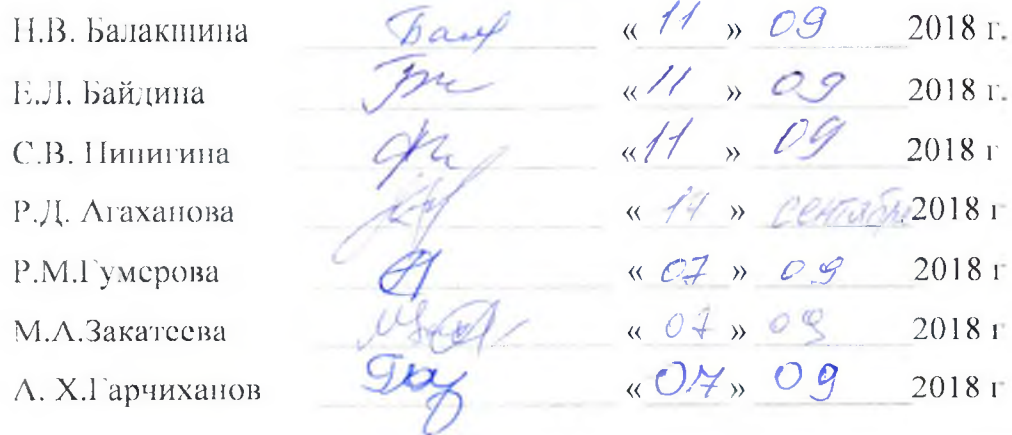 Н.В. Балакшина « 11 » 09 2018 г.
Е.Л. Байдина « 11 » 09 2018 г.
С.В. Пинигина « 11 » 09 2018 г
Р.Д. Агаханова « » сентября 2018 г
Р.М.Гумерова « 07 » 09 2018 г
М.А.Закатеева « 07 » 09 2018 г
А. Х.Гарчиханов « 07 » 09 2018 г